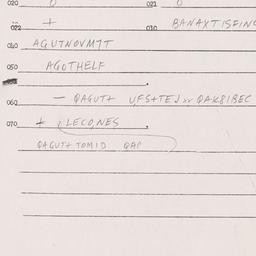 020 0 021 0
022 + 030 BANAXTISFINC
040 AGUTNOVM7T
050 AGOTHELF
060 — QAGUT+ UFS+TEJ QAK81BEC
070 + LECO,NES
QAGUT+ TOMID QAP